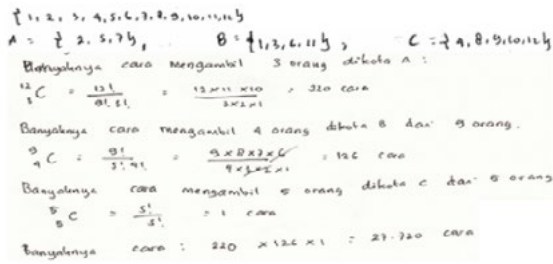 {1, 2, 3, 4, 5, 6, 7, 8, 9, 10, 11, 12}
A = {2, 5, 7}, B = {1, 3, 6, 11}, C = {4, 8, 9, 10, 12}
Banyaknya cara mengambil 3 orang dikota A :
¹²₃C = 12!/9!.3! = 12×11×10/3×2×1 = 220 cara
Banyaknya cara mengambil 4 orang dikota B dari 9 orang.
⁹₄C = 9!/5!.4! = 9×8×7×6/4×3×2×1 = 126 cara
Banyaknya cara mengambil 5 orang dikota C dari 5 orang
⁵₅C = 5!/5! = 1 cara
Banyaknya cara : 220 × 126 × 1 = 27.720 cara